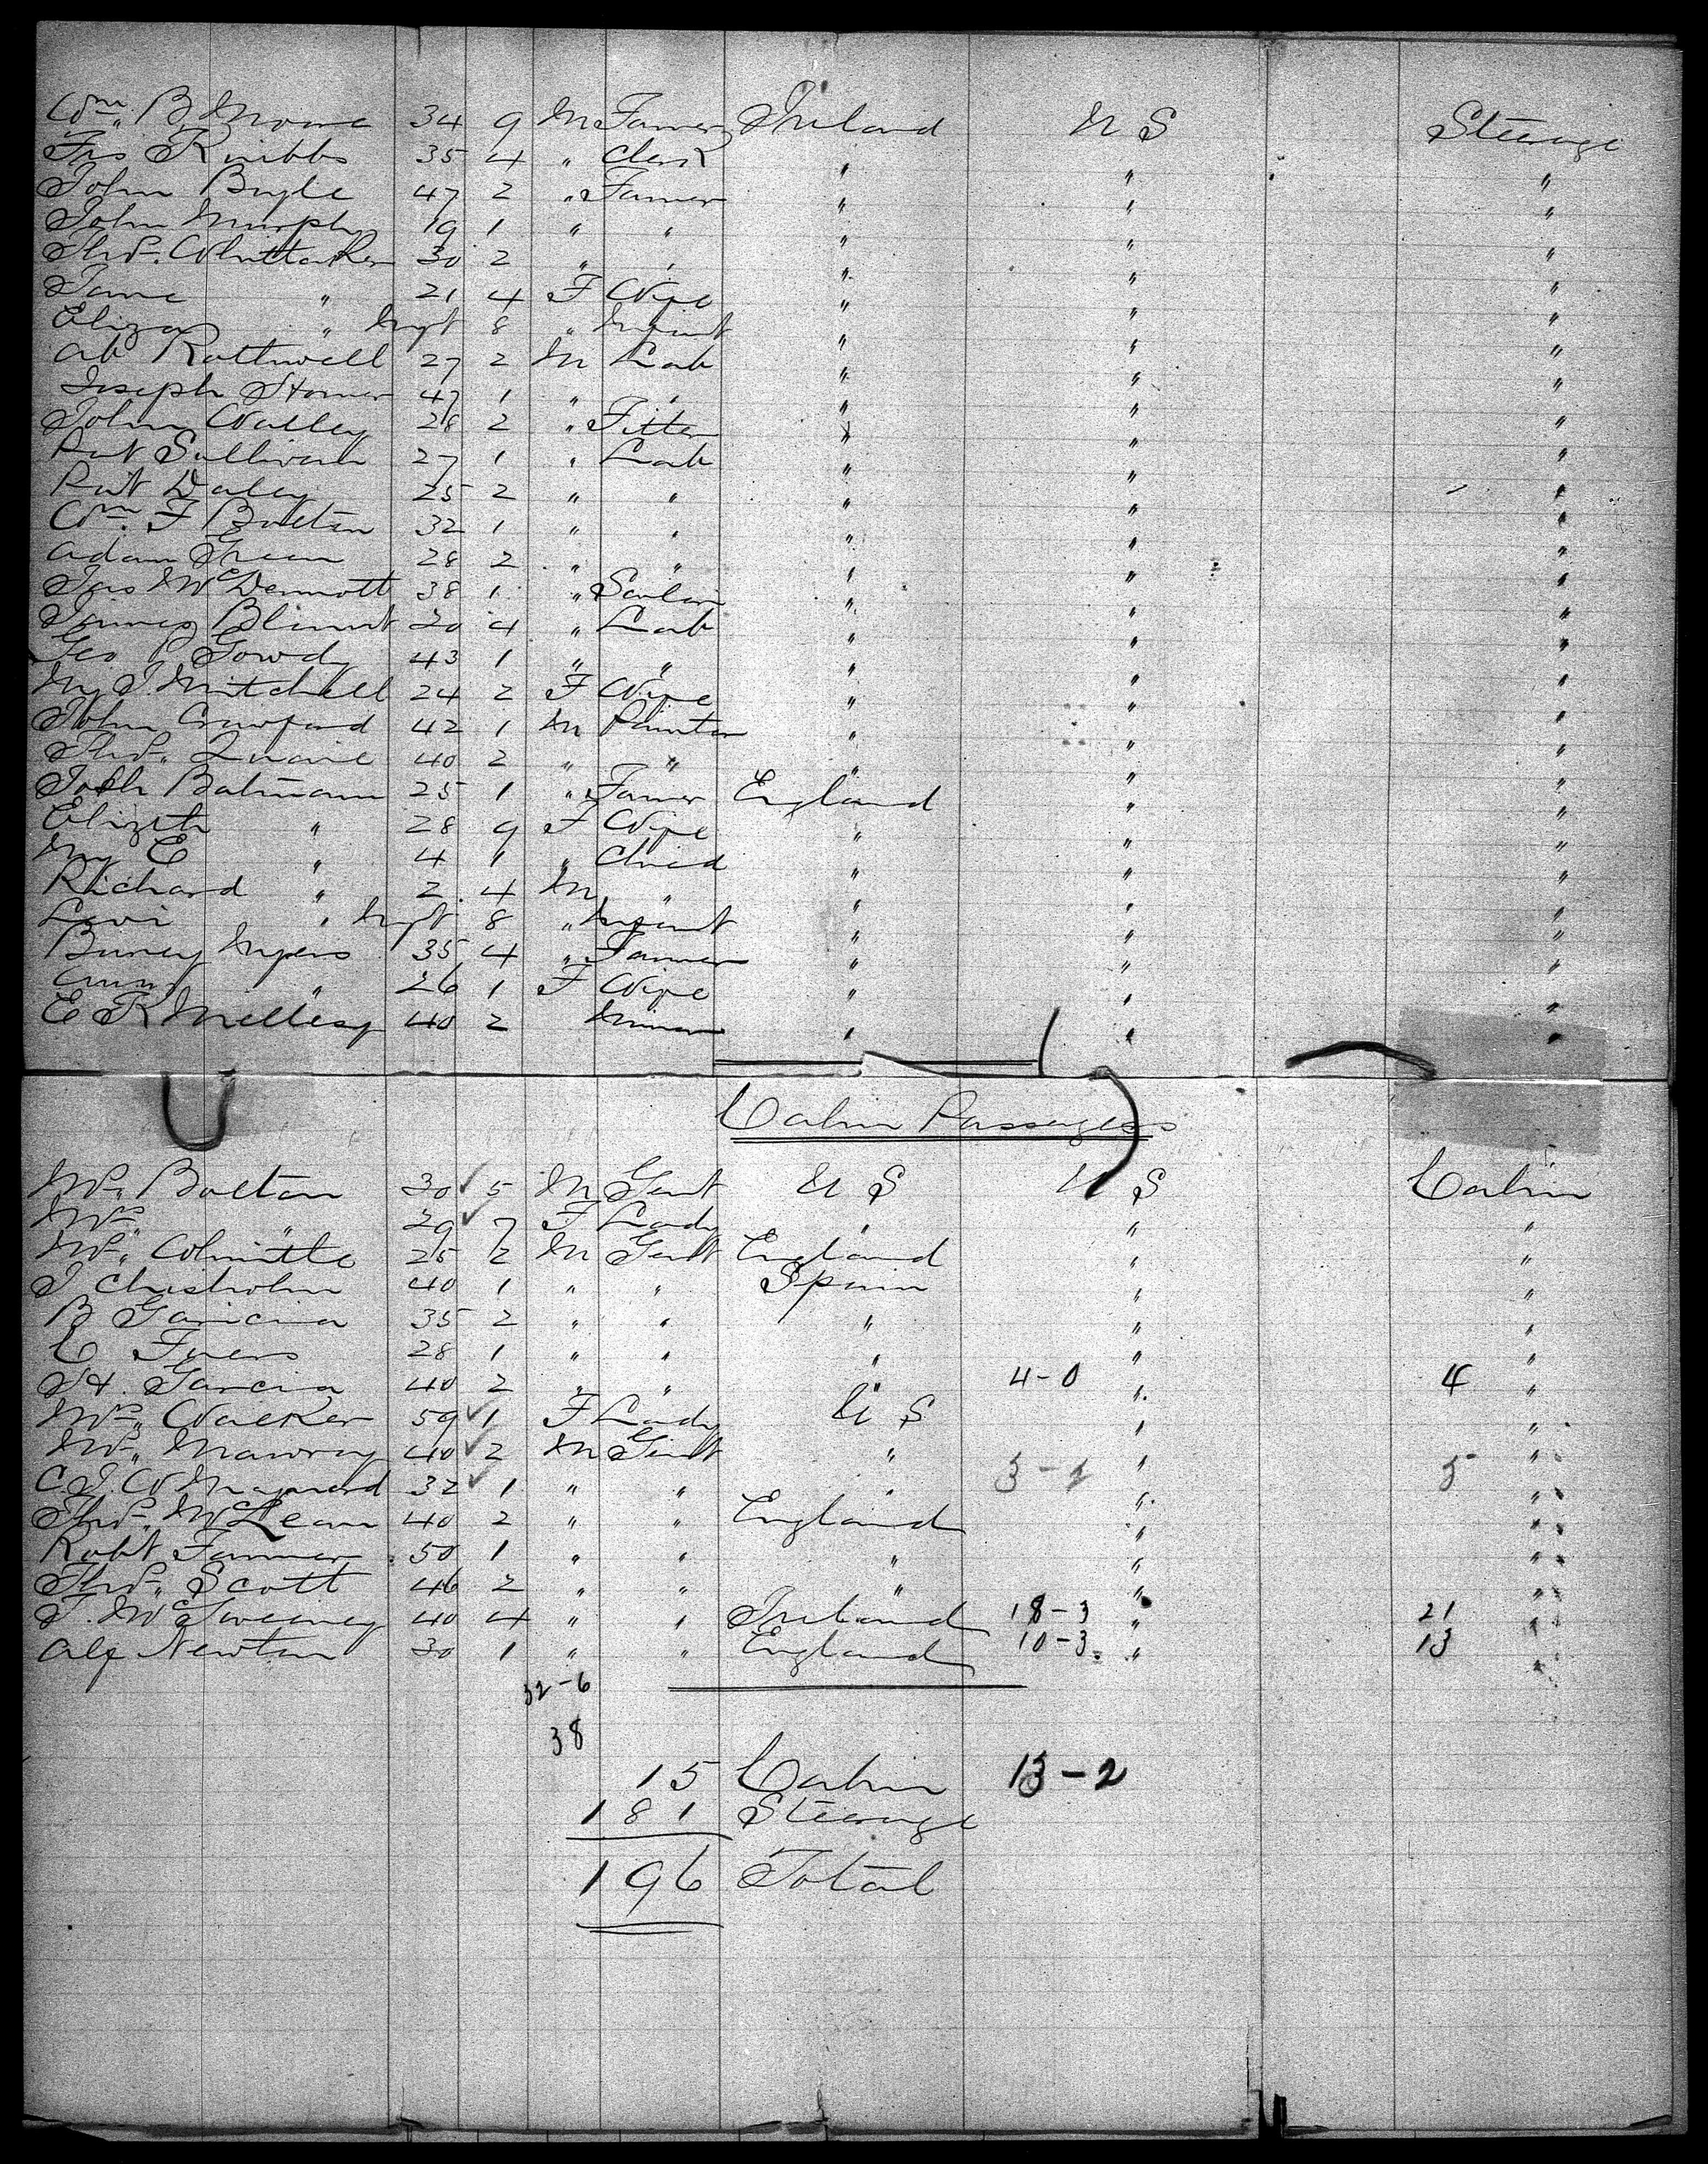 Wm. B Moore 34 9 M Farmer Ireland U S Steerage
Jas Knibbs 35 4 " Clerk " " "
John Boyle 47 2 " Farmer " " "
John Murphy 19 1 " " " " "
Thos. Whittaker 30 2 " " " " "
Jane " 21 4 F Wife " " "
Eliza " Inft 8 " Infant " " "
Ab Rothwell 27 2 M Lab " " "
Joseph Stoner 47 1 " " " " "
John Walley 28 2 " Fitter " " "
Pat Sullivan 27 1 " Lab " " "
Pat Daley 25 2 " " " " "
Wm. F Bolton 32 1 " " " " "
Adam Green 28 2 " " " " "
Jas McDermott 38 1 " Sailor " " "
James 20 4 " Lab " " "
Geo P Gowdy 43 1 " " " " "
My J. Mitchell 24 2 F Wife " " "
John Crawford 42 1 M Painter " " "
Thos. Quaile 40 2 " " " " "
Josh Batmann 25 1 " Farmer England " "
Elizth " 28 9 F Wife " " "
My E " 4 1 " Child " " "
Richard " 2 4 M " " " "
Levi " Inft 8 " Infant " " "
Barney Myers 35 4 " Farmer " " "
Anny " 26 1 F Wife " " "
E R 40 2 " " "
Cabin Passengers
Mr. Bolton 30 5 M Gent U S U S Cabin
Mrs. " 29 7 F Lady " " "
Mr. 25 2 M Gent England " "
J Chisholm 40 1 " " Spain " "
B Garicia 35 2 " " " " "
C 28 1 " " " " "
St. Garcia 40 2 " " " 4-0 " 4 "
Mrs. Walker 59 1 F Lady U S " "
Mr. Mawray 40 2 M Gent " " "
C. J. W Maynard 32 1 " " " 3-2 " 5 "
Thos. McLean 40 2 " " England " "
Robt Farmer 50 1 " " " " "
Thos. Scott 46 2 " " " " "
J. McSweeney 40 4 " " Ireland 18-3 " 21 "
Alf Newton 30 1 " " England 10-3 " 13 "
32-6
38
15 Cabin 13-2
181 Steerage
196 Total